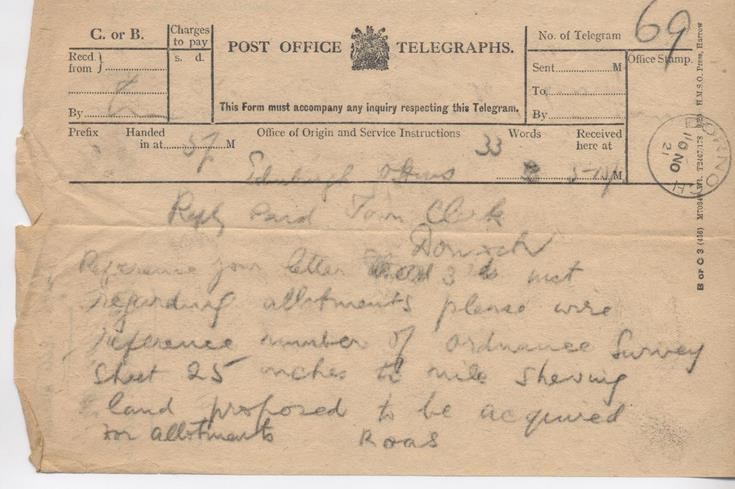 C. or B.
Charges to pay
s. d.
POST OFFICE TELEGRAPHS.
No. of Telegram
69
Office Stamp.
Recd from
By
Sent M
To
By
This Form must accompany any inquiry respecting this Telegram.
Prefix
Handed in at M
Office of Origin and Service Instructions
33
Words
Received here at M
Edinburgh
Reply Paid Town Clerk
Dornoch
Reference your letter 3rd inst
regarding allotments please wire
reference number of ordnance Survey
Sheet 25 inches to mile showing
land proposed to be acquired
for allotments Boas
DORNOCH
10 NO
21
B or C 3
H.M.S.O. Press, Harrow